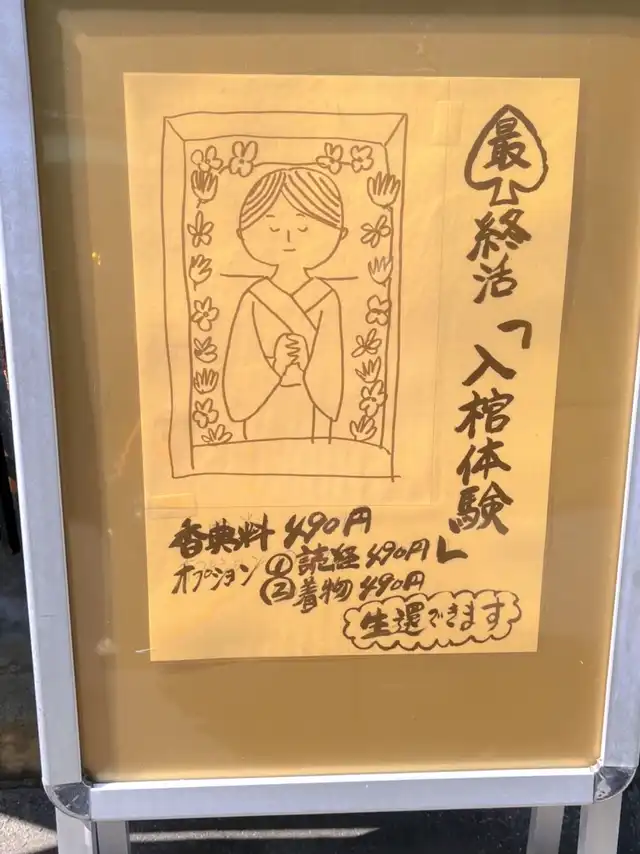 最終活「入棺体験」
香典料 490円
オプション ①読経 490円
②着物 490円
生還できます